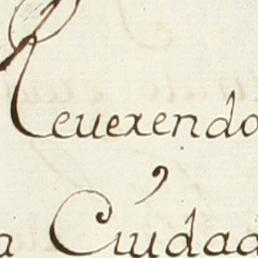 Reuerendo
,
a Ciudad